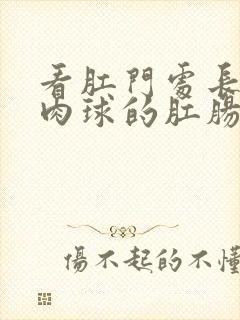 看肛門處長
肉球的肛腸
傷不起的不懂